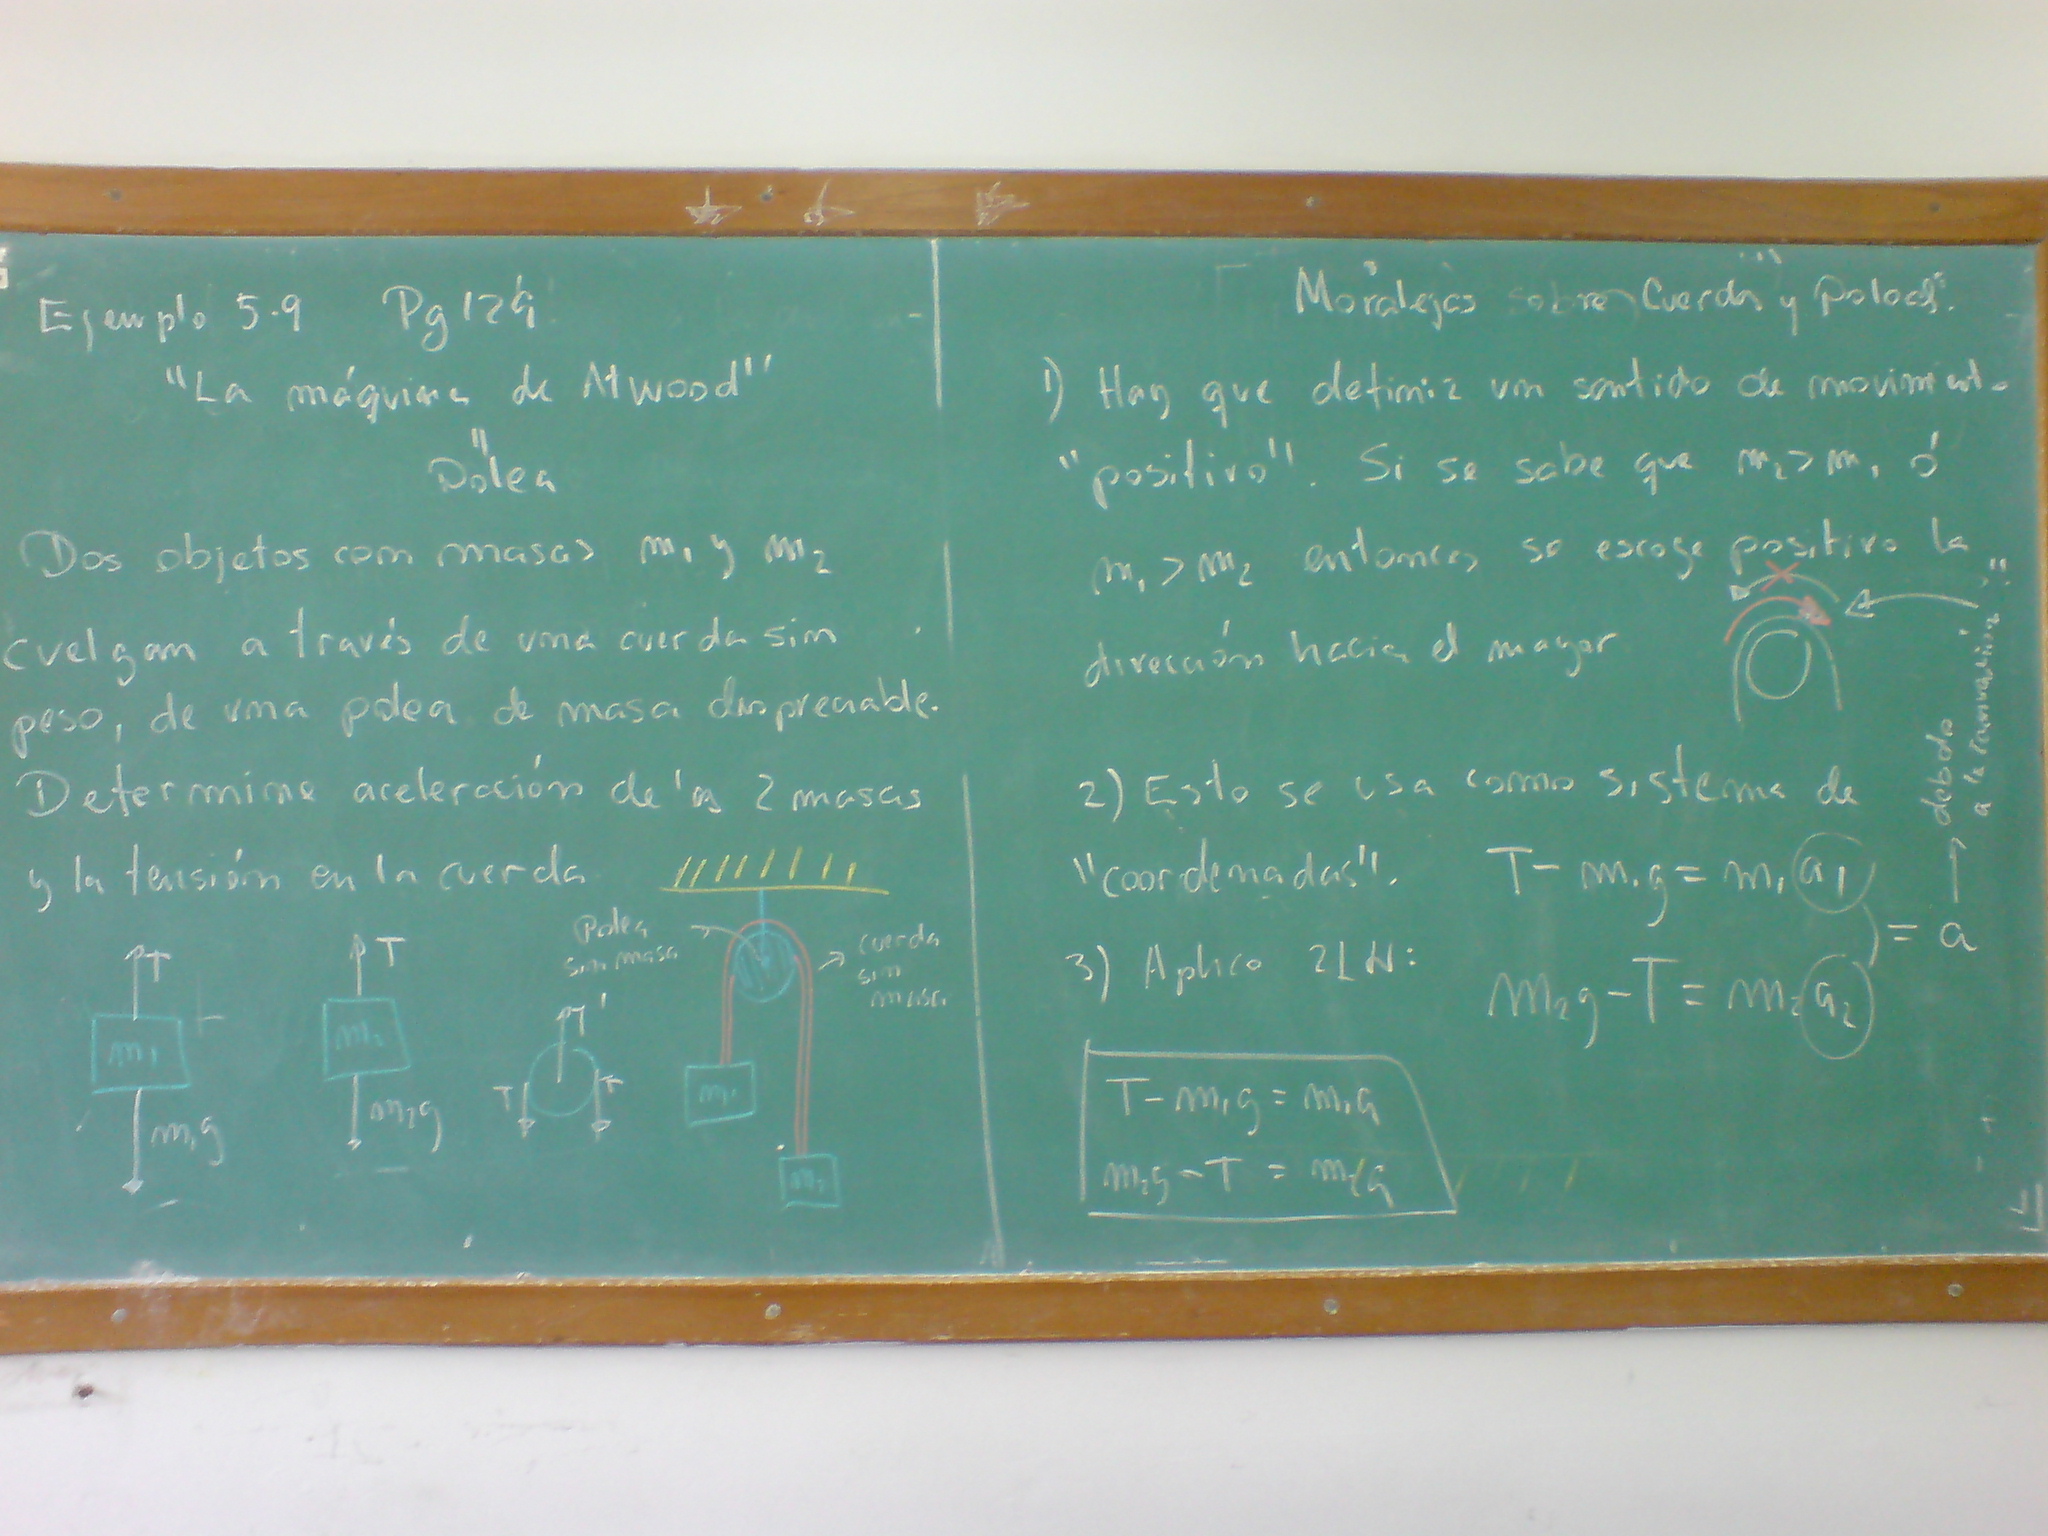 Ejemplo 5.9 Pg 129
"La máquina de Atwood"
"
Polea
Dos objetos con masas m₁ y m₂
cuelgan a través de una cuerda sin
peso, de una polea de masa despreciable.
Determine aceleración de las 2 masas
y la tensión en la cuerda
Polea
sin masa
cuerda
sin
masa
T
m₁
m₁g
T
m₂
m₂g
T'
T
T
m₁
m₂
Moralejas sobre Cuerda y Poleas.
1) Hay que definir un sentido de movimiento
"positivo". Si se sabe que m₂>m₁ ó
m₁ > m₂ entonces se escoge positivo la
dirección hacia el mayor
2) Esto se usa como sistema de
"coordenadas".
3) Aplico 2LN:
T - m₁g = m₁a₁
m₂g - T = m₂a₂
= a
debido
a la
T - m₁g = m₁a
m₂g - T = m₂a